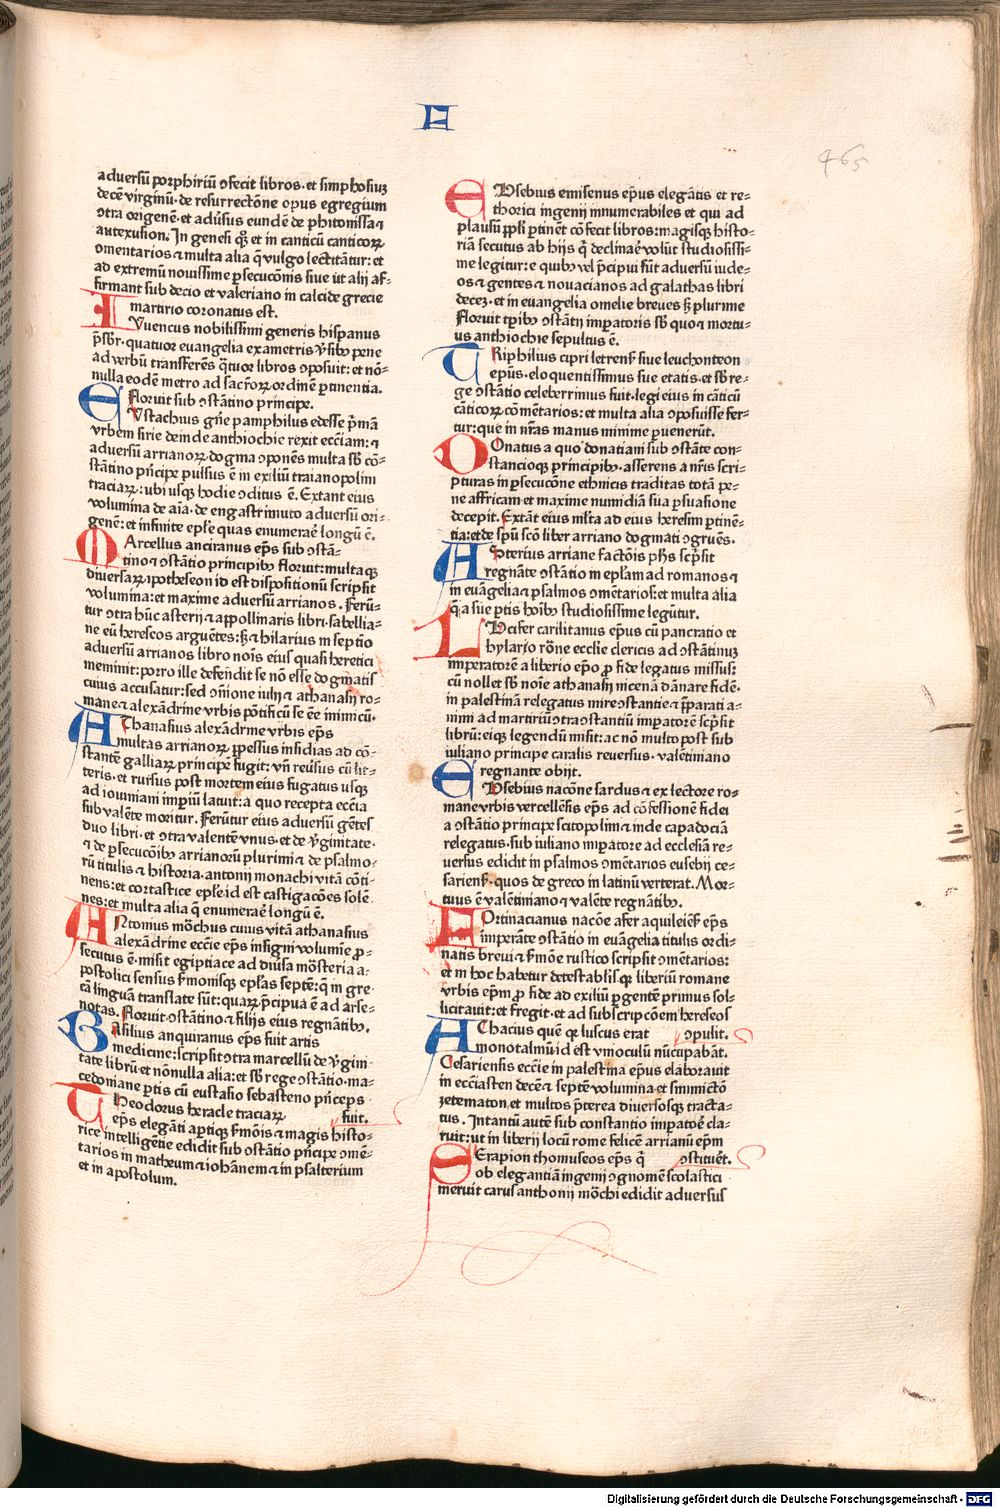 E
465
adversũ porphiriũ ↄfecit libros·et simphosiuʒ
decẽ virginũ·de resurrectõne opus egregium
ↄtra origenẽ·et adũsus eundẽ de phitonissa⁊
autexusion. In genesi qʒ et in canticũ canticoꝝ
ↄmentarios ⁊ multa alia q̃ vulgo lectitãtur: et
ad extremũ novissime ꝑsecucõnis sive ut alij af⸗
firmant sub decio et valeriano in calcide grecie
martirio coronatus est.
IVuencus nobilissimi generis hispanus
p̃sbr·quatuor evangelia exametris v̾sibꝰ pene
ad verbũ transferẽs q̃tuor libros ↄposuit: et nõ⸗
nulla eodẽ metro ad sacr̃oꝝ ordinẽ ꝑtinentia.
Floruit sub ↄstãtino principe.
EVstachius gñe pamphilus edesse p̃mã
vrbem sirie deinde anthiochie rexit eccĩam: ⁊
adversũ arrianoꝝ dogma ↄponẽs multa sb̃ cõ⸗
stãtino pñcipe pulsus ẽ in exiliũ traianopolim
traciaꝝ: ubi usqʒ hodie ↄditus ẽ. Extant eius
volumina de aĩa·de engastrimuto adversũ ori⸗
genẽ: et infinite epĩe quas enumerar̃ longũ ẽ.
MArcellus anciranus ep̃s sub ↄstã⸗
tino ⁊ ↄstãtio principibꝰ floruit: multaqʒ
diversaꝝ ipotheseon id est dispositionũ scripsit
volumina: et maxime adversũ arrianos. Ferũ⸗
tur ↄtra hũc asterij ⁊ appollinaris libri·sabellia⸗
ne eũ hereseos arguẽtes: sʒ ⁊ hilarius in septĩo
adversũ arrianos libro noĩs eius quasi heretici
meminit: porro ille defendit se nõ esse dogmatis
cuius accusatur: sed ↄm̃ione iulij ⁊ athanasij ro⸗
mane ⁊ alexãdrine vrbis põtificũ se ẽe munitũ.
AThanasius alexãdrine vrbis ep̃s
multas arrianoꝝ ꝑpessus insidias ad cõ⸗
stantẽ galliaꝝ principẽ fugit: vñ rev̾sus cũ lit⸗
teris·et rursus post mortem eius fugatus usqʒ
ad ioviniani imperiũ latuit: a quo recepta eccĩa
sub valẽte moritur. Ferũtur eius adversũ gẽtes
duo libri·et ↄtra valentẽ vnus·et de v̾ginitate·
⁊ de ꝑsecucõibꝰ arrianoꝝ plurimi ⁊ de psalmo⸗
rũ titulis ⁊ historia·antonij monachi vitã cõti⸗
nens: et eortastice epĩe id est castigacões solẽ⸗
nes: et multa alia q̃ enumerar̃ longũ ẽ.
ANtonius mõchus cuius vitã athanasius
alexãdrine eccĩe ep̃s insigni volumĩe ꝓ⸗
secutus ẽ·misit egiptiace ad div̾sa mõsteria a⸗
postolici sensus s̾monisqʒ epĩas septẽ: q̃ in gre⸗
cã linguã translate sũt: quaꝝ p̃cipua ẽ ad arse⸗
notas. Floruit ↄstãtino ⁊ filijs eius regnãtibꝰ.
BAsilius anquiranus ep̃s fuit artis
medicine: scripsit ↄtra marcellũ de v̾gini⸗
tate librũ et nõnulla alia: et sb̃ rege ↄstãtio·ma⸗
cedoniane ꝑtis cũ eustasio sebasteno pñceps
THeodorus heracle traciaꝝ fuit.
ep̃s elegãti aptiqʒ s̾mõis ⁊ magis histo⸗
rice intelligẽtie edidit sub ↄstãtio pñcipe ↄmẽ⸗
tarios in matheum ⁊ iohãnem ⁊ in psalterium
et in apostolum.
EVsebius emisenus ep̃us elegãtis et re⸗
thorici ingenij innumerabiles et qui ad
plausũ ppĩi ꝑtinẽt cõfecit libros: magisqʒ histo⸗
riã secutus ab hijs q̃ declinar̃ volũt studiosissi⸗
me legitur: e quibꝰ vel p̃cipui sũt adversũ iude⸗
os ⁊ gentes ⁊ novacianos ad galathas libri
decez·et in evangelia omelie breves sʒ plurime
Floruit tꝑibꝰ ↄstãtij imꝑatoris sb̃ quo ⁊ mortu⸗
us anthiochie sepultus ẽ.
TRiphilius cipri letrens̾ sive leuchonteon
epũs·eloquentissimus sue etatis·et sb̃ re⸗
ge ↄstãtio celeberrimus fuit·legi eius in cãticũ
cãticoꝝ cõmẽtarios: et multa alia ↄposuisse fer⸗
tur: que in nr̃as manus minime ꝑuenerũt.
DOnatus a quo donatiani sub ↄstãte con⸗
stancioqʒ principibꝰ·asserens a nr̃is scri⸗
pturas in ꝑsecucõne ethnicis traditas totã pe⸗
ne affricam·et maxime numidiã sua ꝑsuasione
decepit. Extãt eius ml̃ta ad eius heresim ꝑtinẽ⸗
tia: et de spũ scõ liber arriano dogmati ↄgruẽs.
ASterius arriane factõis ph̃s scp̃sit
regnãte ↄstãtio in epĩam ad romanos ⁊
in euãgelia ⁊ psalmos ↄmẽtarios: et multa alia
q̃ a sue ꝑtis hoĩbꝰ studiosissime legũtur.
LUcifer carilitanus ep̃us cũ pancratio et
hylario rõne ecclie clericis ad ↄstãtinuʒ
imperatorẽ a liberio ep̃o ꝓ fide legatus missus:
cũ nollet sb̃ noĩe athanasij nicenã dãnare fidẽ·
in palestinã relegatus mire ↄstantie ⁊ p̃parati a⸗
nimi ad martiriũ ↄtra ↄstantiũ imꝑatorẽ scp̃sit
librũ: eiqʒ legendũ misit: ac nõ multo post sub
iuliano principe caralis reversus·valẽtiniano
regnante obijt.
EVsebius nacõne sardus ⁊ ex lectore ro⸗
mane vrbis vercellẽsis ep̃s ad cõfessionẽ fidei
a ↄstãtio principe scitopolim ⁊ inde capadociã
relegatus·sub iuliano imꝑatore ad ecclesiã re⸗
versus edidit in psalmos ↄmẽtarios eusebij ce⸗
sariens̾·quos de greco in latinũ verterat. Mor⸗
tuus ẽ valẽtiniano ⁊ valẽte regnãtibꝰ.
FOrtinacianus nacõe afer aquileiens̾ ep̃s
imperãte ↄstãtio in euãgelia titulis ordi⸗
natis brevi ⁊ s̾mõe rustico scripsit ↄmẽtarios:
et in hoc habetur detestabilisqʒ liberiũ romane
vrbis ep̃m ꝓ fide ad exiliũ ꝑgentẽ primus sol⸗
licitavit: et fregit·et ad subscripcõem hereseos
AChacius quẽ qʒ luscus erat ↄpulit.
monotalmũ id est vnoculũ nũcupabãt.
Cesariensis eccĩe in palestina ep̃us elaboravit
in eccĩasten decẽ ⁊ septẽ volumina·et simmictõ
zetematon·et multos p̃terea diversosqʒ tracta⸗
tus. Intantũ autẽ sub constantio imꝑatore cla⸗
ruit: ut in liberij locũ rome felicẽ arrianũ ep̃m
SErapion thomuseos ep̃s q̃ ↄstituẽt.
ob elegantiã ingenij ↄgnomẽ scolastici
meruit carus anthonij mõchi edidit adversus
Digitalisierung gefördert durch die Deutsche Forschungsgemeinschaft - DFG